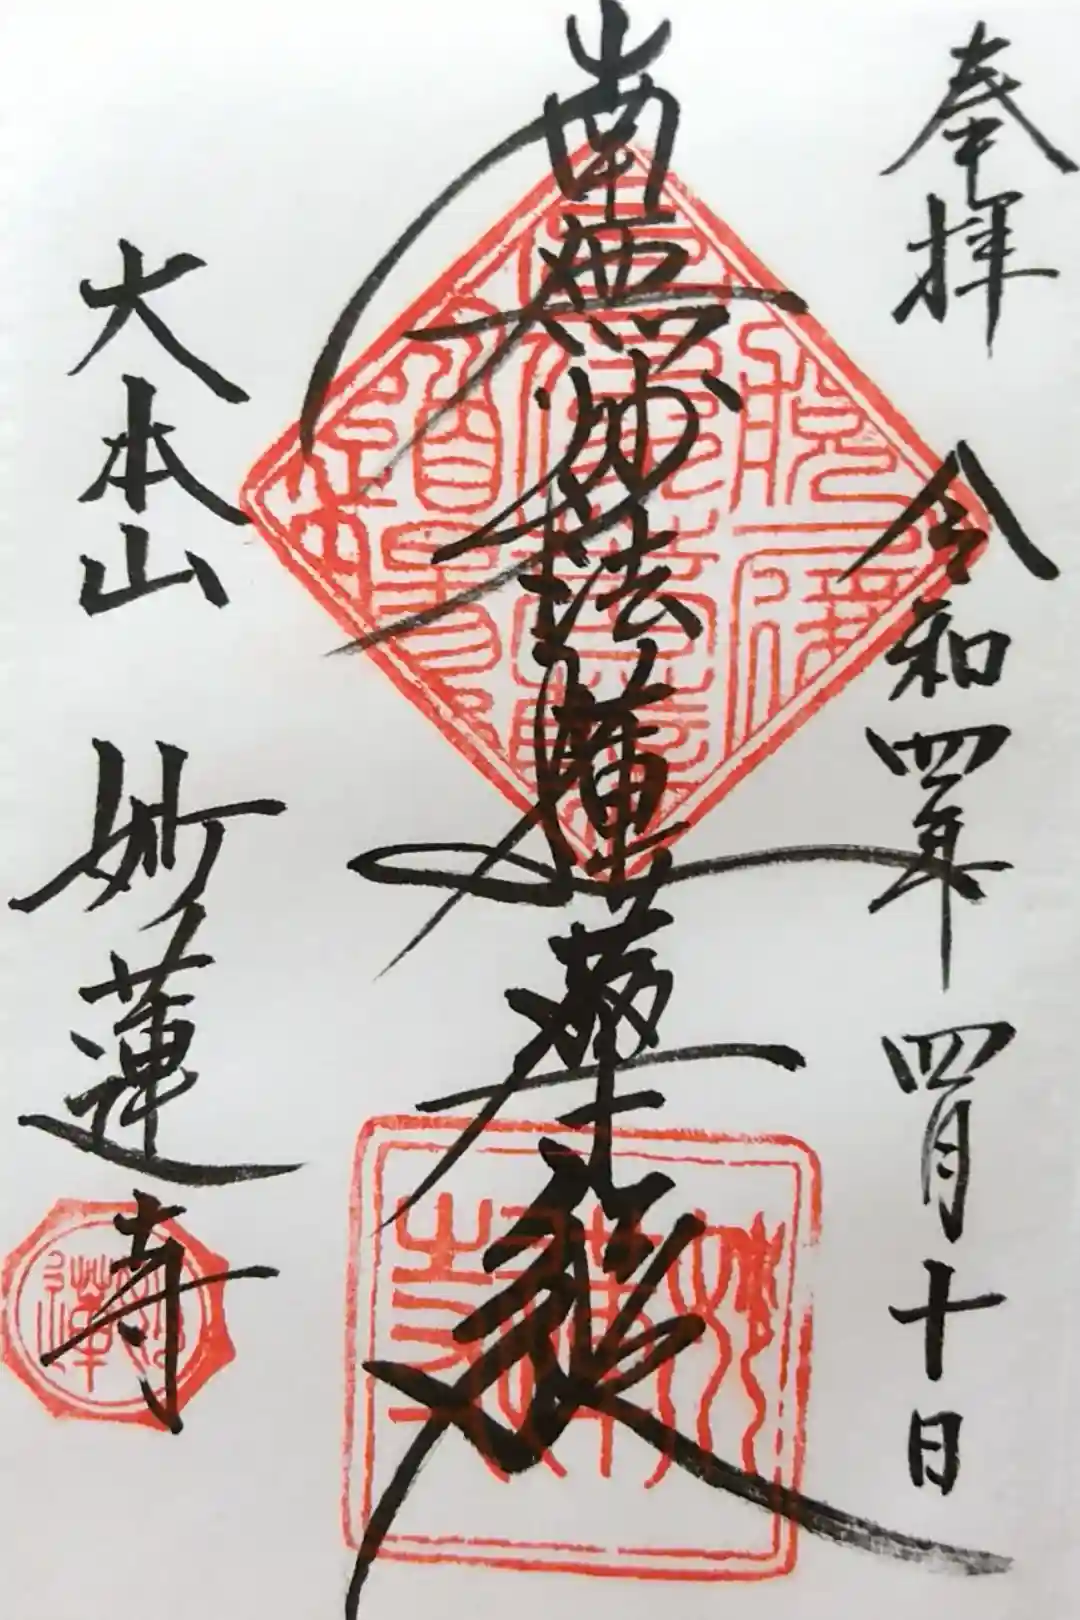 奉拝 令和四年 四月十日
南無妙法蓮華経
大本山 妙蓮寺
妙蓮寺
妙蓮